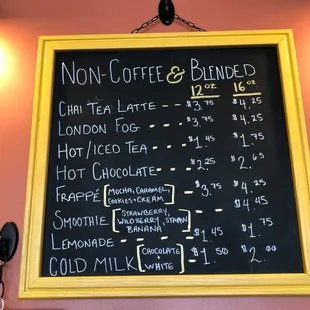 NON-COFFEE & BLENDED
12 oz 16 oz
CHAI TEA LATTE -- $3.75 $4.25
LONDON FOG ---- $3.75 $4.25
HOT/ICED TEA --- $1.45 $1.75
HOT CHOCOLATE --- $2.25 $2.65
FRAPPÉ [MOCHA, CARAMEL, COOKIES+CREAM] - $3.75 $4.25
SMOOTHIE [STRAWBERRY, WILDBERRY, STRAW BANANA] -- $4.45
LEMONADE ---- $1.45 $1.75
COLD MILK [CHOCOLATE + WHITE] - $1.50 $2.00